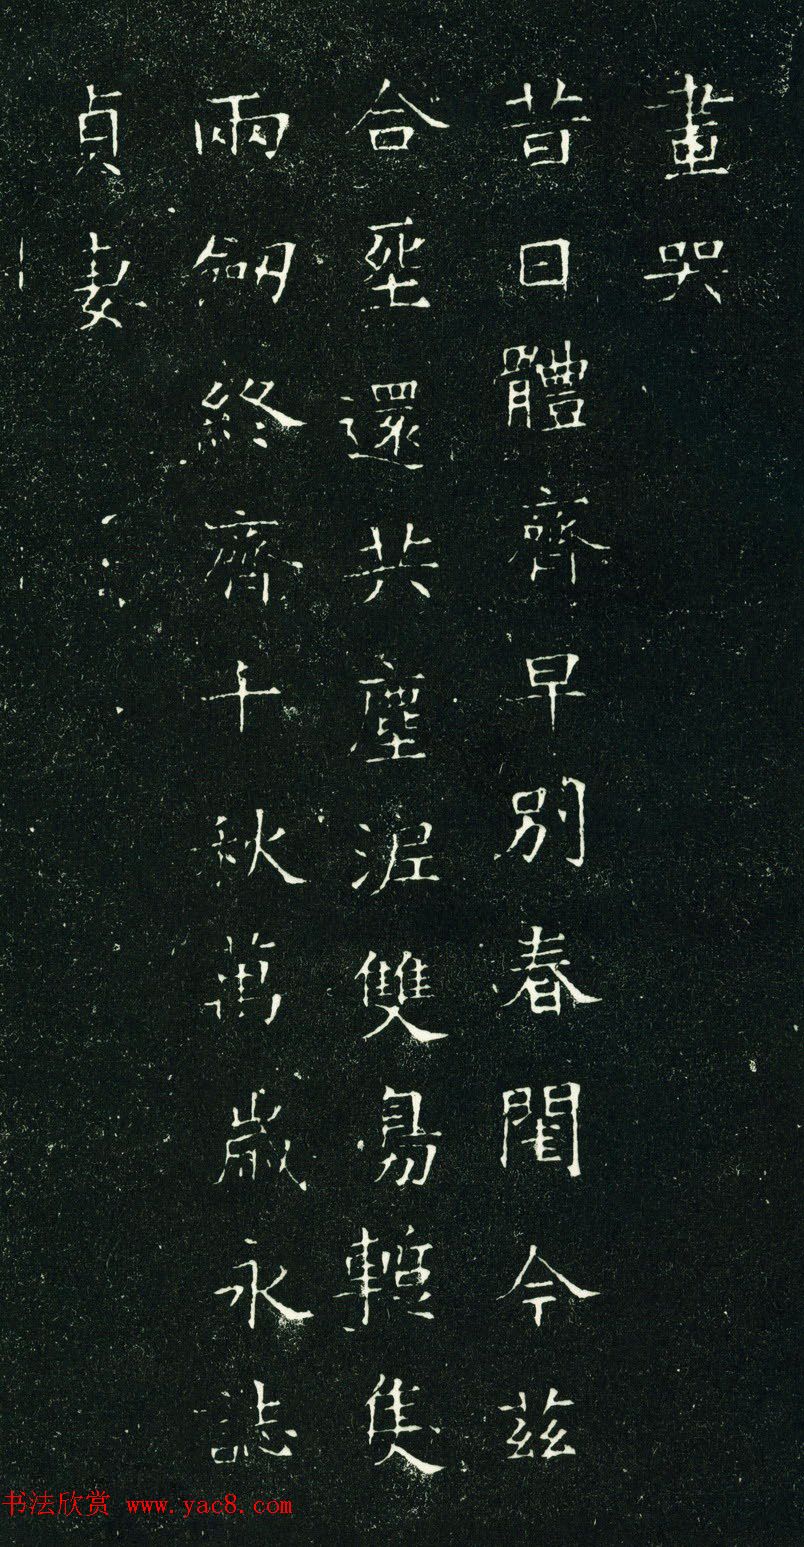 畫哭
昔日體齊早別春閨今茲
合葬還共塵泥雙鳧暫隻
兩劒終齊千秋萬歲永誌
貞妻
书法欣赏 www.yac8.com